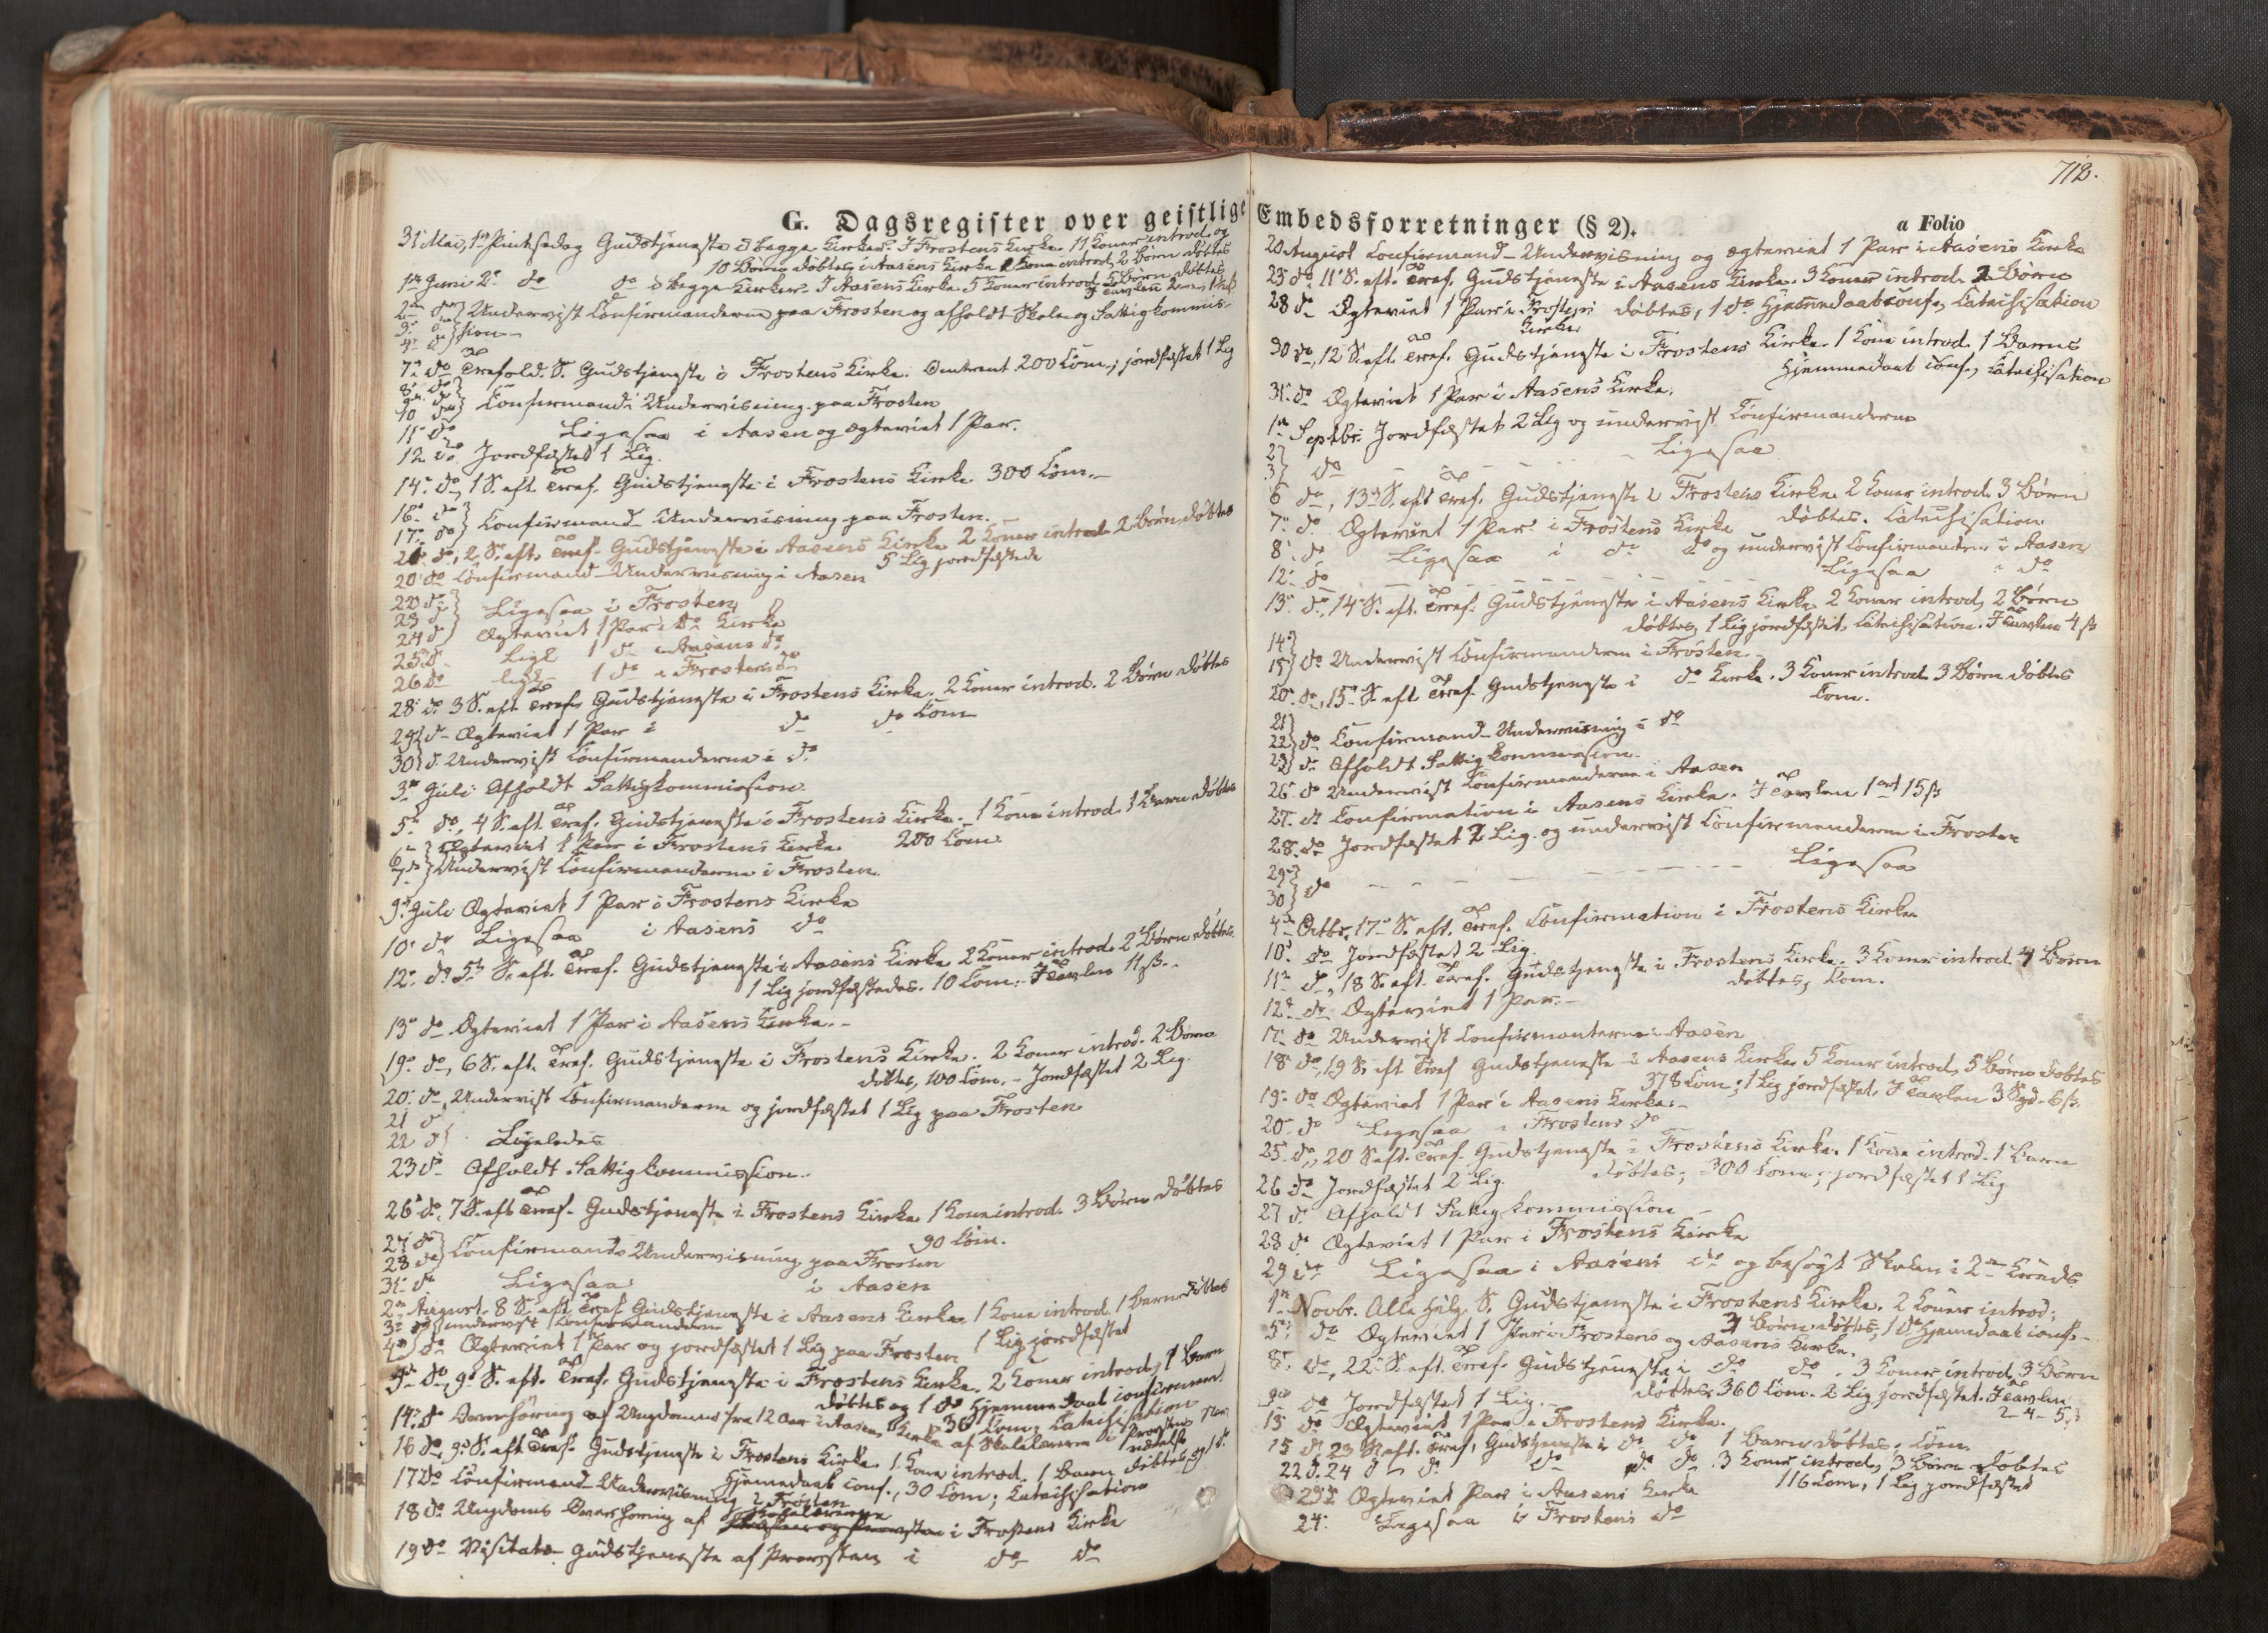 G. Dagsregister over geistlige
31 Mai, 1ste Pintsedag Gudstjeneste i begge Kirker. I Frostens Kirke 11 Koner introd. og
10 Børn døbtes, i Aasens Kirke Kone introd. 2 Børn døbtes
1ste Juni 2den do do i begge Kirker. I Aasens Kirke 5 Koner introd. Børn døbtes
2den do Underviist Confirmanderne paa Frosten og afholdt Skole og Fattigkommis-
3 do sion
4 do
7de do Trefold. S. Gudstjeneste i Frostens Kirke. Omtrent 200 Com.; jordfæstet 1 Lig
8 do
9 do
10 do Confirmand Underviisning paa Frosten
11 do Ligesaa i Aasen og ægteviet 1 Par.
12 do Jordfæstet 1 Lig.
14 do, 1 S. eft. Tref. Gudstjeneste i Frostens Kirke 300 Com.
16 do
17 do Confirmand-Underviisning paa Frosten.
21 do, 2 S. eft. Tref. Gudstjeneste i Aasens Kirke 2 Koner introd. 2 Børn døbtes
5 Lig jordfæstede
20 do Confirmand-Underviisning i Aasen
22 do
23 do Ligesaa i Frosten
24 do Ægteviet 1 Par i do Kirke
25 do Lige 1 do i Aasens do
26 do lige 1 do i Frostens do
28 do 3 S. eft. Tref. Gudstjeneste i Frostens Kirke. 2 Koner introd. 2 Børn døbtes
Com
29 do Ægteviet 1 Par i do do
30 do Underviist Confirmanderne i do
3die Juli Afholdt Fattigkommission.
5te do, 4 S. eft. Tref. Gudstjeneste i Frostens Kirke. 1 Kone introd. 1 Barn døbtes
200 Com.
6 Ægteviet 1 Par i Frostens Kirke.
7 do Underviist Confirmanderne i Frosten.
9de Juli Ægteviet 1 Par i Frostens Kirke
10 do Ligesaa i Aasens do
12 do 5te S. eft. Tref. Gudstjeneste i Aasens Kirke 2 Koner introd. 2 Børn døbtes.
1 Lig jordfæstedes. 10 Com. I Tavlen 11 ß.
13 do Ægteviet 1 Par i Aasens Kirke.
19 do, 6 S. eft. Tref. Gudstjeneste i Frostens Kirke. 2 Koner introd. 2 Børn
døbtes, 100 Com. - Jordfæstet 2 Lig.
20 do, Underviist Confirmanderne og jordfæstet 1 Lig paa Frosten
21 do
22 do Ligeledes
23 do Afholdt Fattigkommission.
26 do, 7 S. eft. Tref. Gudstjeneste i Frostens Kirke 1 Kone introd. 3 Børn døbtes
90 Com.
27 do
28 do Confirmands Underviisning paa Frosten
31 do Ligesaa i Aasen
2den August. 8 S. eft. Tref. Gudstjeneste i Aasens Kirke. 1 Kone introd. 1 Barn døbtes
1 Lig jordfæstet
3 do underviist Confirmanderne
4 do Ægteviet 1 Par og jordfæstet 1 Lig paa Frosten
9 do, 9de S. eft. Tref. Gudstjeneste i Frostens Kirke. 2 Koner introd., 1 Barn
døbtes og 1 do Hjemmedaab confirmeret.
36 Com; Catechisation
14 do Overhøring af Ungdommen fra 12 Aar i Aasens Kirke af Skolelærerne i Provstens Nær-
værelse
16 do, S. eft. Tref. Gudstjeneste i Frostens Kirke. 1 Kone introd. 1 Barn døbtes og 1 do
Hjemmedaab conf., 30 Com; Catechisation
17 do Confirmand-Underviisning i Frosten
18 do Ungdoms Overhøring af Skolelærerne i Frostens Kirke
19 do Visitats-Gudstjeneste af Provsten i do do
712.
Embedsforretninger (§ 2).
a Folio
20 August Confirmand-Underviisning og ægteviet 1 Par i Aasens Kirke
23 do 11 S. eft. Tref. Gudstjeneste i Aasens Kirke. 3 Koner introd. 2 Børn
døbtes, 1 do Hjemmedaab conf., Catechisation
28 do Ægteviet 1 Par i Frostens
Kirke
30 do, 12 S. eft. Tref. Gudstjeneste i Frostens Kirke. 1 Kone introd. 1 Barns
Hjemmedaab Conf., Catechisation
31 do Ægteviet 1 Par i Aasens Kirke.
1ste Septbr. Jordfæstet 2 Lig og underviist Confirmanderne
2
3 do Ligesaa
6 do, 13 S. eft. Tref. Gudstjeneste i Frostens Kirke. 2 Koner introd. 3 Børn
døbtes. Catechisation.
7 do Ægteviet 1 Par i Frostens Kirke
8 do Ligesaa i do do og underviist Confirmanderne i Aasen
12 do Ligesaa i do
13 do, 14 S. eft. Tref. Gudstjeneste i Aasens Kirke 2 Koner introd., 2 Børn
døbtes, 1 Lig jordfæstet, Catechisation. I Tavlen 4 ß
14
15 do Underviist Confirmanderne i Frosten.
20 do, 15 S. eft. Tref. Gudstjeneste i do Kirke. 3 Koner introd. 3 Børn døbtes
Com.
21
22 do Confirmand-Underviisning i do
23 do Afholdt Fattigkommission.
26 do Underviist Confirmanderne i Aasen
27 do Confirmation i Aasens Kirke. I Tavlen 1 ort 15 ß
28 do Jordfæstet 2 Lig og underviist Confirmanderne i Frosten
29
30 do Ligesaa
4de Octbr. 17 S. eft. Tref. Confirmation i Frostens Kirke
10 do Jordfæstet 2 Lig.
11 do, 18 S. eft. Tref. Gudstjeneste i Frostens Kirke. 3 Koner introd. 4 Børn
døbtes, Com.
12 do Ægteviet 1 Par.
17 do Underviist Confirmanterne i Aasen
18 do, 19 S. eft Tref Gudstjeneste i Aasens Kirke 5 Koner introd., 5 Børn døbtes
378 Com; 1 Lig jordfæstet. I Tavlen 3 Spd. 6 ß.
19 do Ægteviet 1 Par i Aasens Kirke.
20 do Ligesaa i Frostens do
25 do, 20 S. eft. Tref. Gudstjeneste i Frostens Kirke. 1 Kone introd. 1 Barn
døbtes; 300 Com.; jordfæstet 1 Lig
26 do Jordfæstet 2 Lig.
27 do Afholdt Fattigkommission
28 do Ægteviet 1 Par i Frostens Kirke
29 do Ligesaa i Aasens do og besøgt Skolen i 2den Kreds
1ste Novbr. Alle Helg. S. Gudstjeneste i Frostens Kirke. 2 Koner introd;
3 Børn døbtes, 1 do Hjemdaab conf.
5 do Ægteviet 1 Par i Frostens og Aasens Kirke.
8 do, 22 S. eft. Tref. Gudstjeneste i do do. 3 Koner introd, 3 Børn
døbtes 360 Com. 2 Lig jordfæstet. I Tavlen
2-4-5
9 do Jordfæstet 1 Lig.
13 do Ægteviet 1 Par i Frostens Kirke.
15 do 23 S. eft. Tref. Gudstjeneste i do do 1 Barn døbtes. Com.
22 do 24 do do do do do 3 Koner introd, 3 Børn døbtes
116 Com, 1 Lig jordfæstet
23 do Ægteviet Par i Aasens Kirke
24 Ligesaa i Frostens do